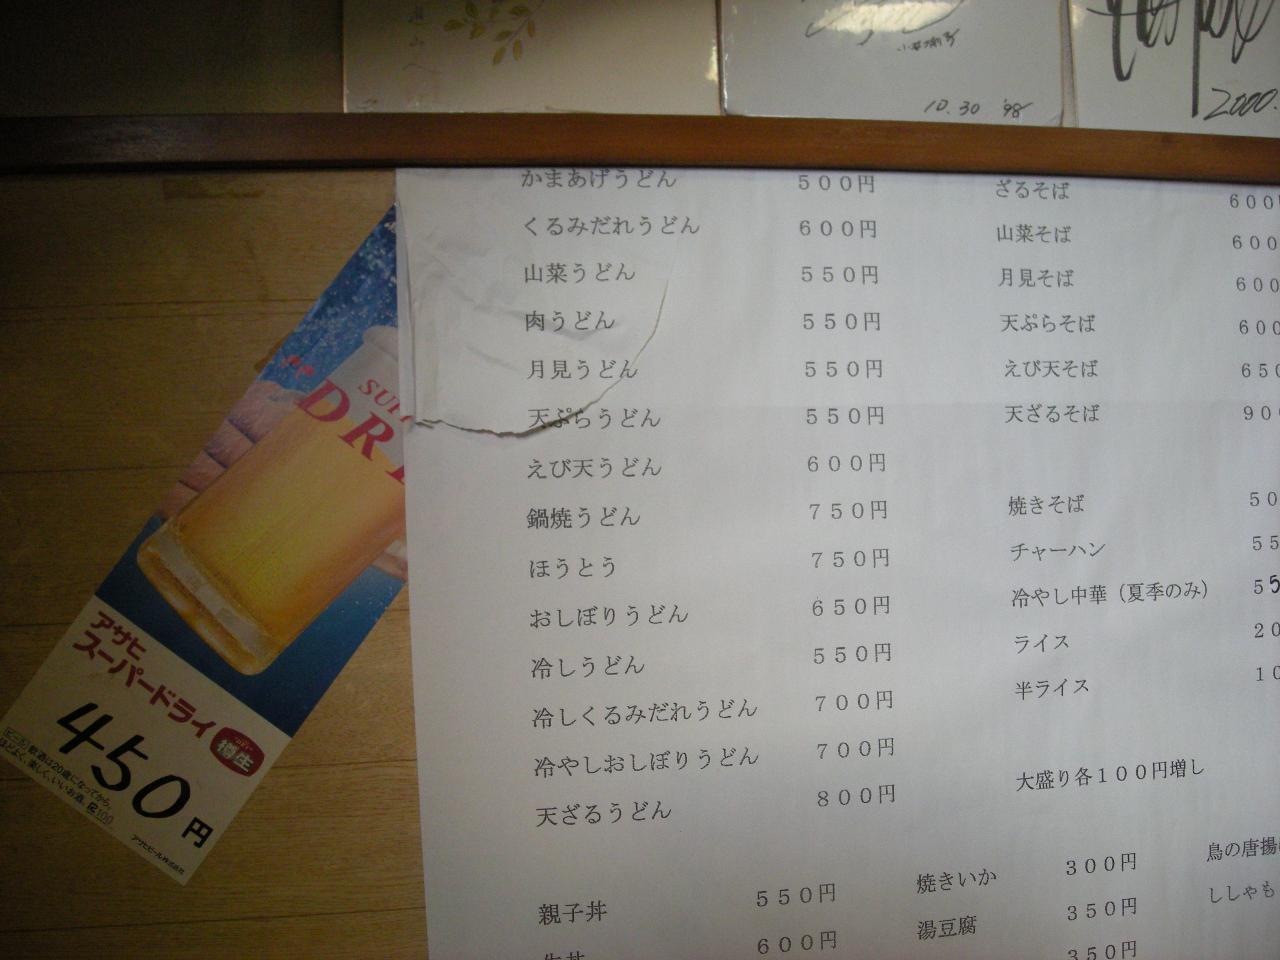 10.30 '98
2000.
かまあげうどん 500円
くるみだれうどん 600円
山菜うどん 550円
肉うどん 550円
月見うどん 550円
天ぷらうどん 550円
えび天うどん 600円
鍋焼うどん 750円
ほうとう 750円
おしぼりうどん 650円
冷しうどん 550円
冷しくるみだれうどん 700円
冷やしおしぼりうどん 700円
天ざるうどん 800円
ざるそば 600
山菜そば 600
月見そば 600
天ぷらそば 600
えび天そば 650
天ざるそば 900
焼きそば 50
チャーハン 55
冷やし中華（夏季のみ） 55
ライス 20
半ライス 10
大盛り各100円増し
親子丼 550円
600円
焼きいか 300円
湯豆腐 350円
350円
鳥の唐揚
ししゃも
DR
アサヒ
スーパードライ
樽生
450円
飲酒は20歳になってから。
ほどよく、楽しく、いいお酒。
アサヒビール株式会社